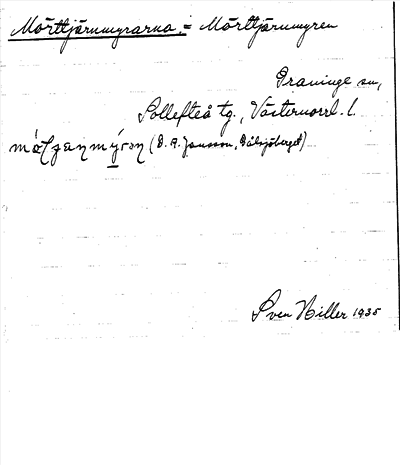 Mörttjärnmyrarna = Mörttjärnmyren
Graninge sn,
Sollefteå tg., Västernorrl. l.
(E. A. Jansson, Bölsjöberget)
Sven Hiller 1935